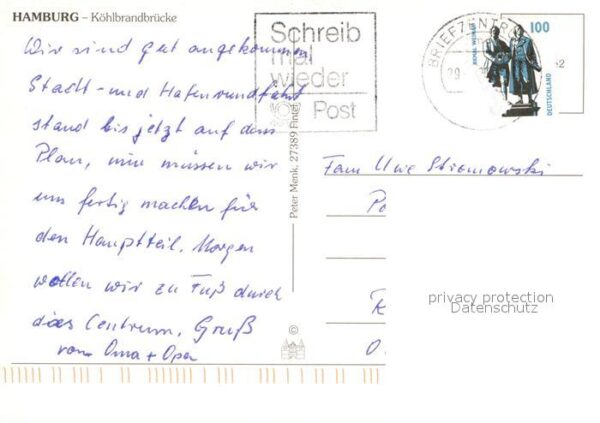 HAMBURG – Köhlbrandbrücke
Wir sind gut angekommen
Stadt- und Hafenrundfahrt
stand bis jetzt auf dem
Plan, nun müssen wir
uns fertig machen für
den Hauptteil. Morgen
wollen wir zu Fuß durch
das Centrum. Gruß
von Oma + Opa
Peter Menk, 27389 Fintel
©
Schreib
mal
wieder
Post
BRIEFZENTRUM
29
100
DEUTSCHLAND
Fam Uwe Stromowski
Po
K
O
privacy protection
Datenschutz